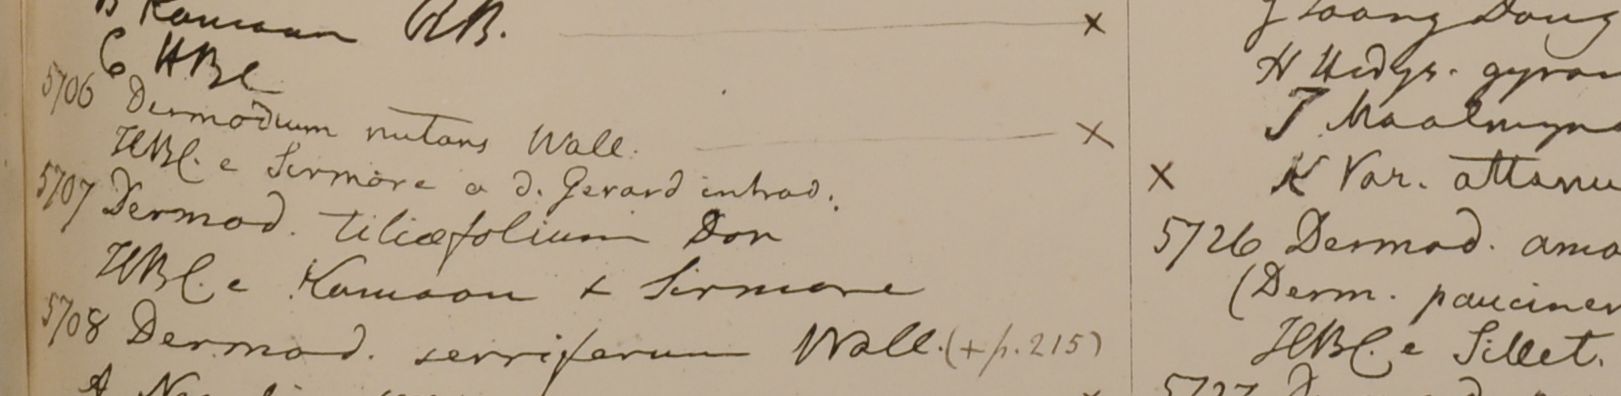 B Kamaon RB. x
C HBC
5706 Desmodium nutans Wall. x
HBC. e Sirmore a d. Gerard introd.
5707 Desmod. tiliæfolium Don
HBC. e Kamaon & Sirmore
5708 Desmod. serriferum Wall. (+ p. 215)
A
Dong
H Hedys. gyran
J Moalmyne
x K Var. attenu
5726 Desmod. amo
(Desm. pauciner
HBC. e Sillet.
5727